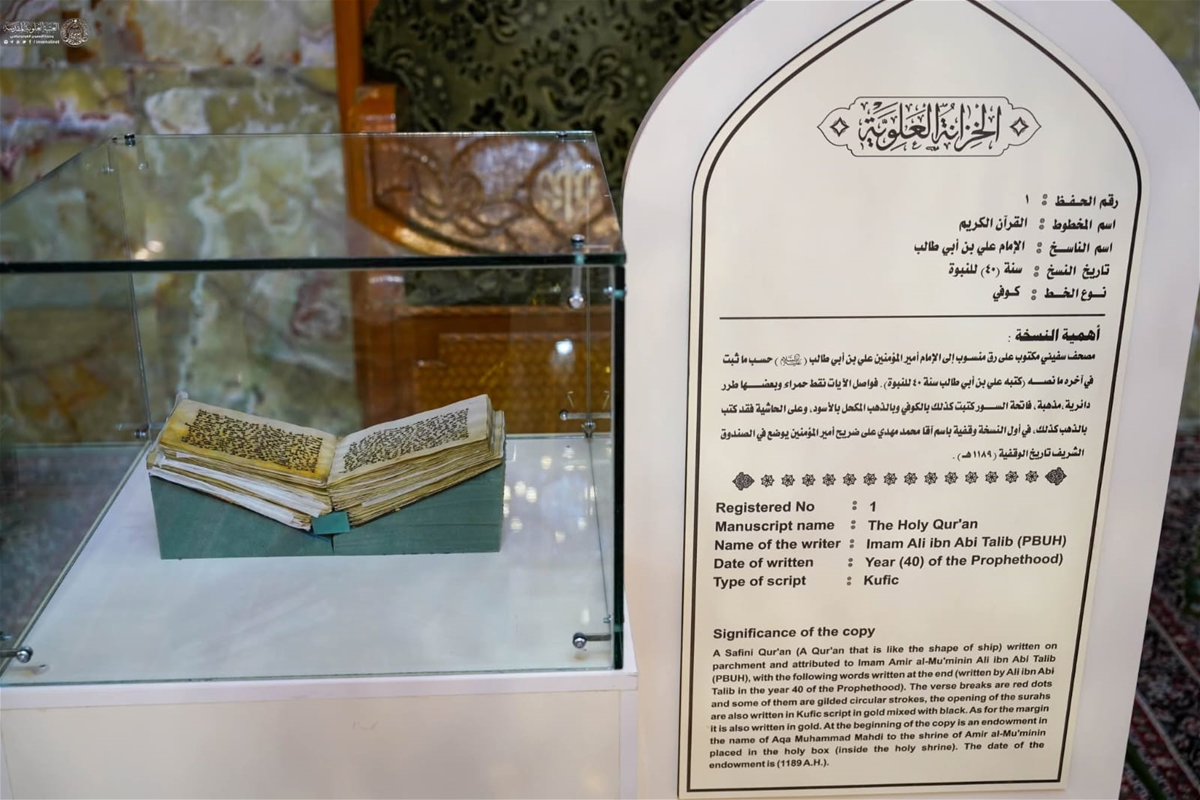 العتبة العلوية المقدسة
الخزانة العلوية
رقم الحفظ : ١
اسم المخطوط : القرآن الكريم
اسم الناسخ : الإمام علي بن أبي طالب
تاريخ النسخ : سنة (٤٠) للنبوة
نوع الخط : كوفي
أهمية النسخة :
مصحف سفيني مكتوب على رق منسوب إلى الإمام أمير المؤمنين علي بن أبي طالب (عليه السلام) حسب ما ثبت
في آخره ما نصه (كتبه علي بن أبي طالب سنة ٤٠ للنبوة). فواصل الآيات نقط حمراء وبعضها طرر
دائرية مذهبة، فاتحة السور كتبت كذلك بالكوفي وبالذهب المكحل بالأسود، وعلى الحاشية فقد كتب
بالذهب كذلك، في أول النسخة وقفية باسم آقا محمد مهدي على ضريح أمير المؤمنين يوضع في الصندوق
الشريف تاريخ الوقفية (١١٨٩ هـ).
Registered No : 1
Manuscript name : The Holy Qur'an
Name of the writer : Imam Ali ibn Abi Talib (PBUH)
Date of written : Year (40) of the Prophethood)
Type of script : Kufic
Significance of the copy
A Safini Qur'an (A Qur'an that is like the shape of ship) written on
parchment and attributed to Imam Amir al-Mu'minin Ali ibn Abi Talib
(PBUH), with the following words written at the end (written by Ali ibn Abi
Talib in the year 40 of the Prophethood). The verse breaks are red dots
and some of them are gilded circular strokes, the opening of the surahs
are also written in Kufic script in gold mixed with black. As for the margin
it is also written in gold. At the beginning of the copy is an endowment in
the name of Aqa Muhammad Mahdi to the shrine of Amir al-Mu'minin
placed in the holy box (inside the holy shrine). The date of the
endowment is (1189 A.H.).